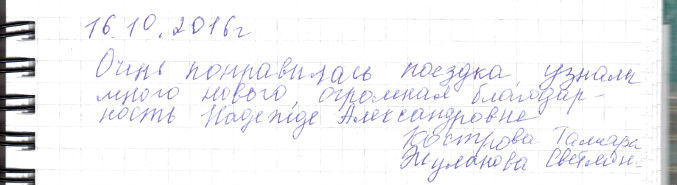 16.10.2016г
Очень понравилась поездка, узнали
много нового, огромная благодар-
ность Надежде Александровне
Кострова Тамара
Жуланова Светлан